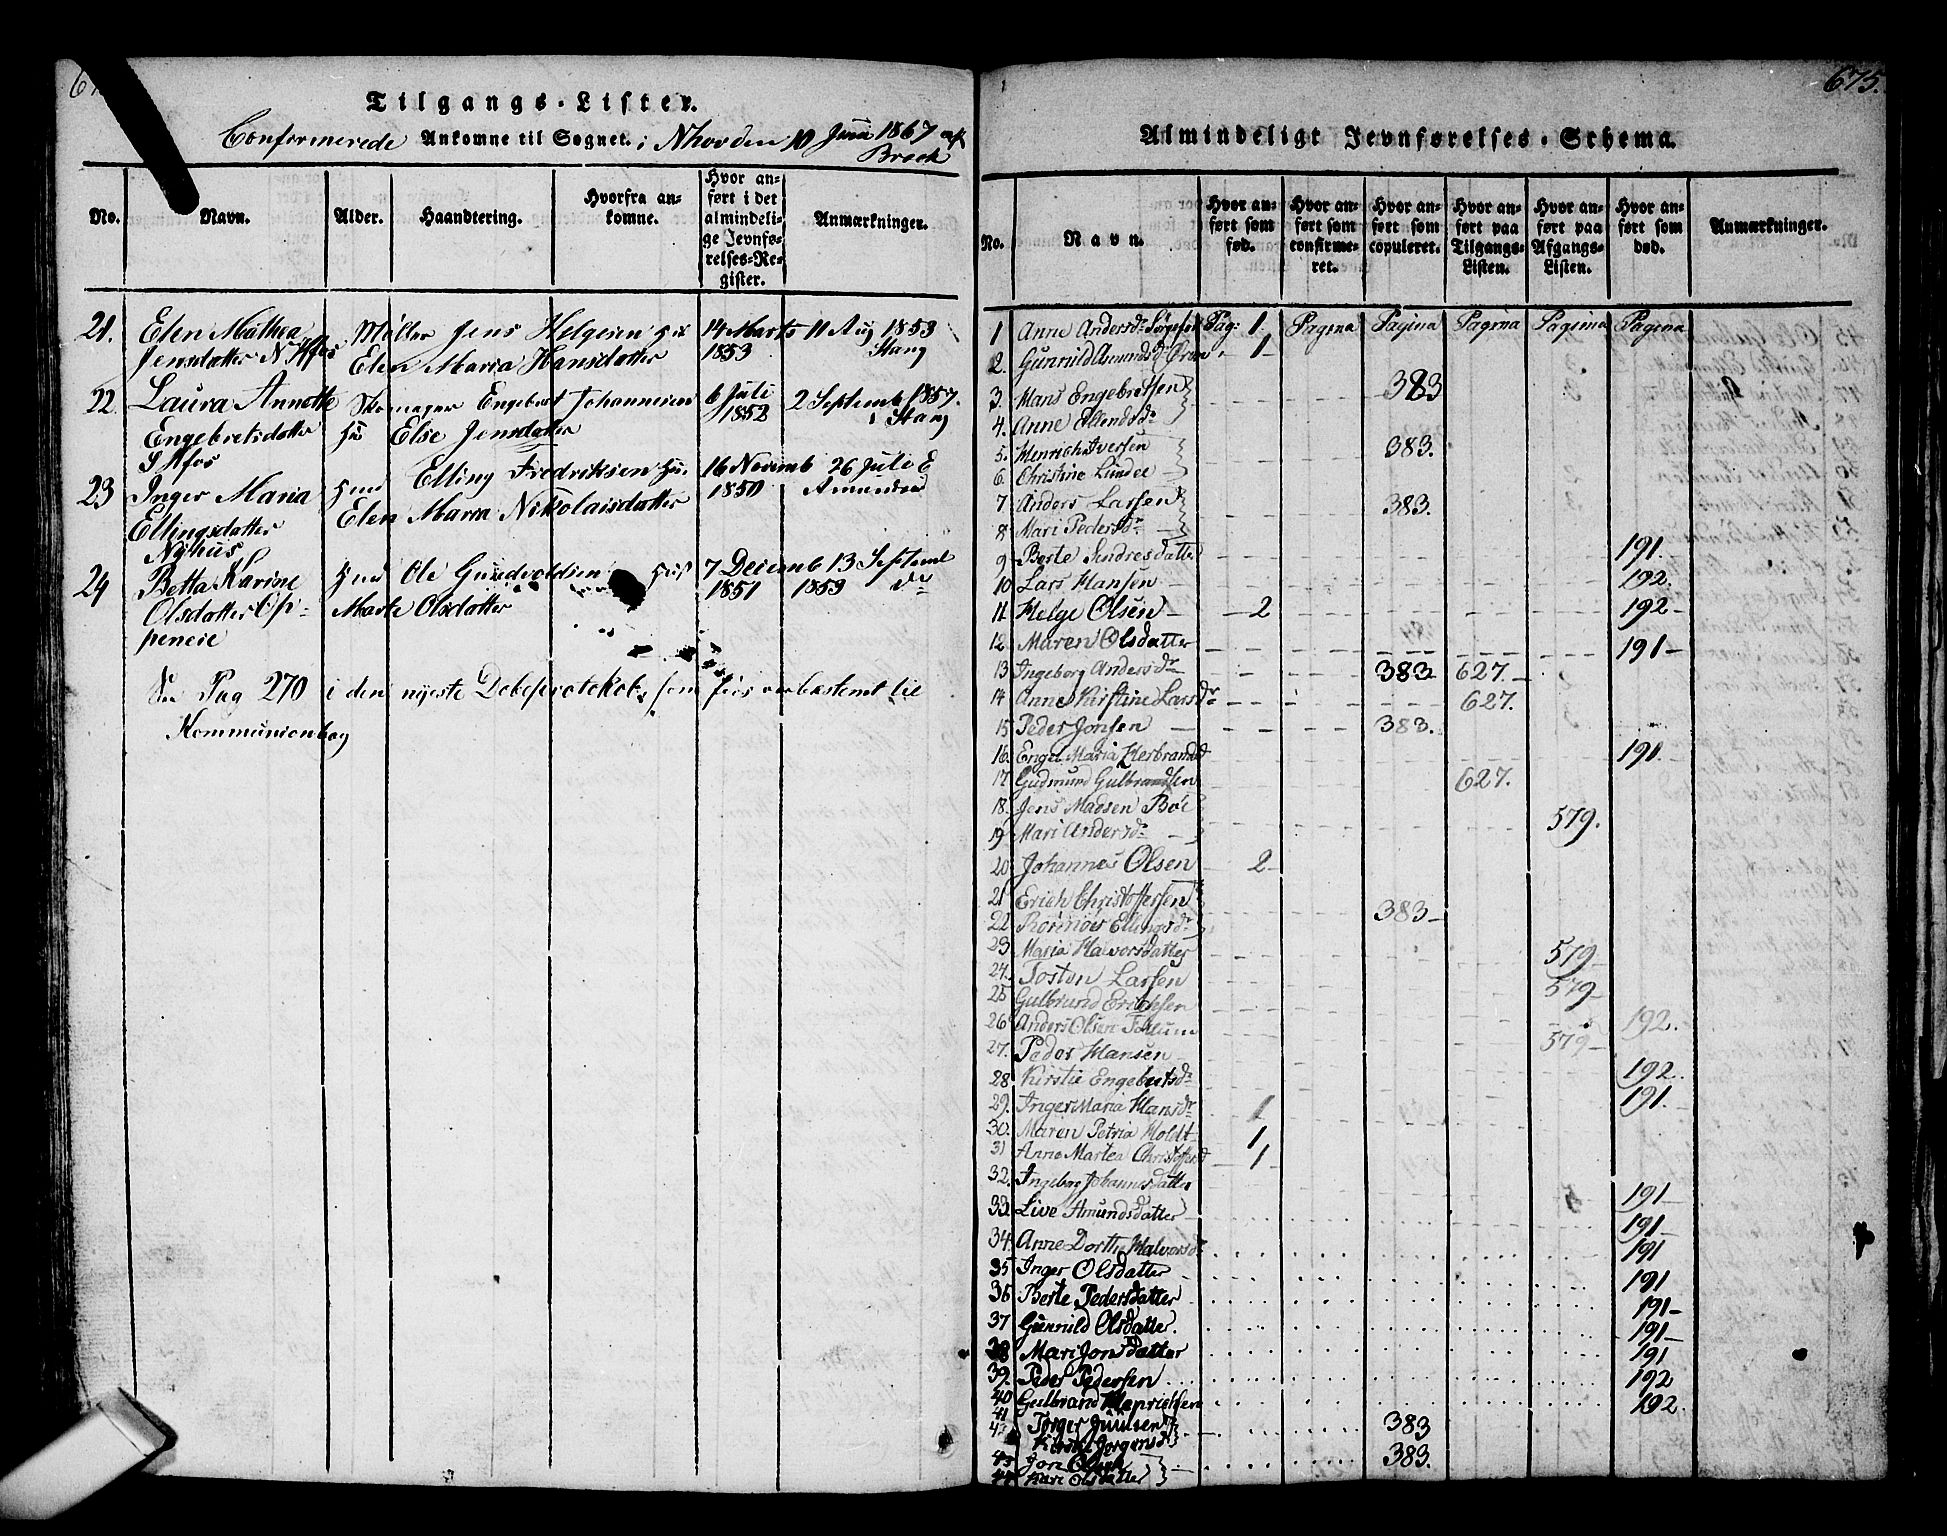 Tilgangs-Lister.
Conformerede Ankomne til Sognet. i Nhorden 10 Juni 1867 af
Brock
No.
Navn.
Alder.
Haandtering.
Hvorfra an-
komne.
Hvor an-
ført i det
almindeli-
ge Jevnfø-
relses-Re-
gister.
Anmærkninger.
21. Elen Mathea Møller Jens Helgesen Hu 14 Marts 11 Aug 1853
Jensdatter N Hfos Elen Maria Hansdatter 1853 Stang
22 Laura Annette Skomager Engebret Johannesen 6 Juli 2 Septemb 1857.
Engebretsdatter Hu Elise Jensdatter 1852 i Stang
S Hfos
23 Inger Maria Elling Fredriksen Hu. 16 Novemb 26 Juli E
Ellingsdatter Elen Maria Nikolaisdatter 1850 Amundrød
Nyhus
24 Betta Karine Ole Gundvoldsen 7 Decemb 13 Septemb
Olsdatter Op- Marte Olsdatter 1851 1859 do
peneie
Pag 270 i den nyeste Dobeprotokol, som
Kommunionbog
675.
Almindeligt Jevnførelses-Schema.
No.
Navn.
Hvor an-
ført som
fød.
Hvor an-
ført som
confirme-
ret.
Hvor an-
ført som
copuleret.
Hvor an-
ført paa
Tilgangs-
Listen.
Hvor an-
ført paa
Afgangs-
Listen.
Hvor an-
ført som
død.
Anmærkninger.
1 Anne Andersdr Pag: 1. Pagina Pagina Pagina Pagina Pagina
2. Gunnild Amundsdr 1
3. Hans Engebretsen 383
4. Anne Ellendsdr
5. Henrich Iversen 383.
6 Christine Lundee
7 Anders Larsen 383.
8 Mari Pedersdr
9 Berte Sendresdatter 191.
10 Lars Hansen 192.
11 Helge Olsen 2 192
12 Maren Olsdatter 191
13 Ingeborg Andersdr 383 627.
14 Anne Kirstine Larsdr 627.
15 Peder Jonsen 383.
16. Engel Maria Herbrandsd 191.
17 Gudmund Gulbrandsen 627.
18. Jens Madsen Böe
19 Mari Andersdr 579.
20 Johannes Olsen 2
21 Erich Christoffersen 383
22 Ellingsdr
23 Maria Halvorsdatter 579
24. Tosten Larsen 579
25 Gulbrand Erichsen
26 Anders Olsen 192.
27. Peder Hansen 579
28 Kirstie Engebretsdr 192.
29. Inger Maria Hansdr 1 191.
30. Maren Petria Holdt 1
31 Anne Martea Christoffersd 1
32. Ingeborg Johannesdatter 191
33. Live Amundsdatter 191
34 Anne Dorthe Halvorsdr 191
35 Inger Olsdatter 191
36 Berte Pedersdatter 191
37 Gunnild Olsdatter. 191
38 Mari Jonsdatter 191
39. Peder Pedersen 192
40 Gulbrand Henrichsen 192.
41 Jörger Juulsen 383
42 Kirstie Jorgensdr
43 Jon 383.
44 Kari Olsdatter